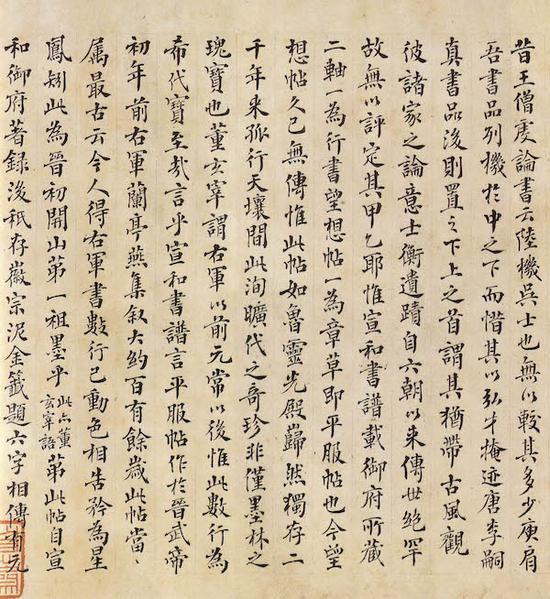 昔王僧虔論書云陸機吳士也無以較其多少庾肩
吾書品列機於中之下而惜其以弘才掩迹唐李嗣
真書品後則置之下上之首謂其猶帶古風觀
彼諸家之論意士衡遺蹟自六朝以來傳世絕罕
故無以評定其甲乙耶惟宣和書譜載御府所藏
二軸一為行書望想帖一為章草即平復帖也今望
想帖久已無傳惟此帖如魯靈光殿巋然獨存二
千年來孤行天壤間此洵曠代之奇珍非僅墨林之
瑰寶也董玄宰謂右軍以前元常以後惟此數行為
希代寶至哉言乎宣和書譜言平復帖作於晉武帝
初年前右軍蘭亭燕集敘大約百有餘歲此帖當、
屬最古云今人得右軍書數行已動色相告矜為星
鳳矧此為晉初開山第一祖墨乎此六董玄宰語第此帖自宣
和御府著錄後祇存徽宗泥金籤題六字相傳有元